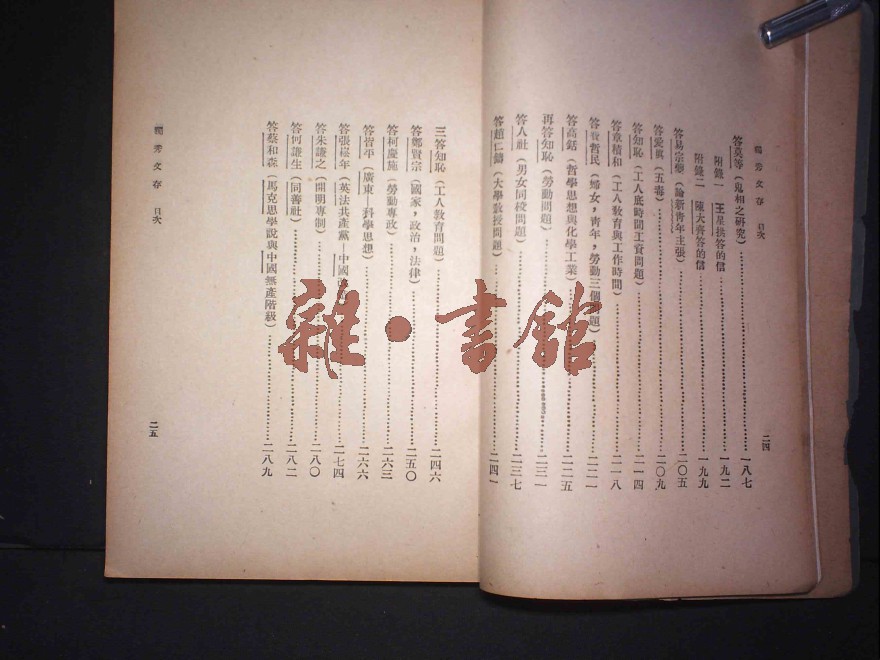 獨秀文存 目次
二四
答莫等（鬼相之研究）……一八七
附錄一 王星拱答的信……一九二
附錄二 陳大齊答的信……一九九
答易宗夔（論新青年主張）……二〇五
答愛真（五毒）……二〇九
答知恥（工人底時間工資問題）……二一四
答章積和（工人敎育與工作時間）……二一八
答哲民（婦女，靑年，勞動三個題）……二二一
答高銛（哲學思想與化學工業）……二二五
再答知恥（勞動問題）……二三一
答人社（男女同校問題）……二三七
答趙仁鑄（大學敎授問題）……二四一
三答知恥（工人敎育問題）……二四六
答鄭賢宗（國家，政治，法律）……二五〇
答柯慶施（勞動專政）……二六三
答皆平（廣東—科學思想）……二六六
答張崧年（英法共產黨—中國）……二七四
答朱謙之（開明專制）……二八〇
答何謙生（同善社）……二八二
答蔡和森（馬克思學說與中國無產階級）……二八九
獨秀文存 目次
二五
雜·書館